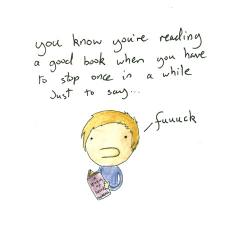 you know you're reading
a good book when you have
to stop once in a while
Just to say...
fuuuck